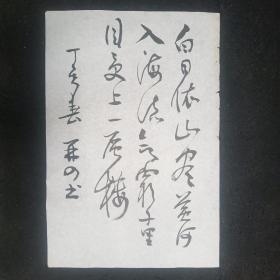 白日依山盡黄河
入海流欲窮千里
目更上一層樓
丁亥春 书